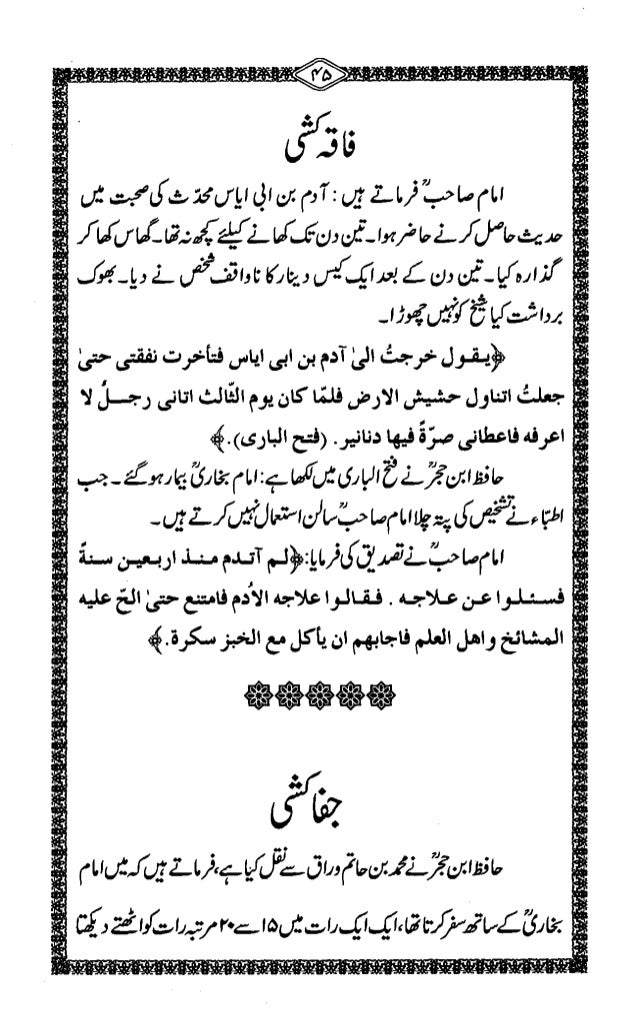 ۴۵
فاقہ کشی
امام صاحبؒ فرماتے ہیں : آدم بن ابی ایاس محدّث کی صحبت میں
حدیث حاصل کرنے حاضر ہوا۔ تین دن تک کھانے کیلئے کچھ نہ تھا۔ گھاس کھا کر
گذارہ کیا۔ تین دن کے بعد ایک کیس دینار کا ناواقف شخص نے دیا۔ بھوک
برداشت کیا شیخ کو نہیں چھوڑا۔
﴿یقول خرجتُ الیٰ آدم بن ابی ایاس فتأخرت نفقتی حتیٰ
جعلتُ اتناول حشیش الارض فلمّا کان یوم الثّالث اتانی رجلٌ لا
اعرفه فاعطانی صرّةً فیها دنانیر. (فتح الباری).﴾
حافظ ابن حجرؒ نے فتح الباری میں لکھا ہے: امام بخاریؒ بیمار ہو گئے۔ جب
اطبّاء نے تشخیص کی پتہ چلا امام صاحبؒ سالن استعمال نہیں کرتے ہیں۔
امام صاحبؒ نے تصدیق کی فرمایا: ﴿لم آتدم منذ اربعین سنةً
فسئلوا عن علاجه . فقالوا علاجه الأدم فامتنع حتیٰ الحّ علیه
المشائخ و اهل العلم فاجابهم ان یأکل مع الخبز سکرة.﴾
جفا کشی
حافظ ابن حجرؒ نے محمد بن حاتم وراق سے نقل کیا ہے، فرماتے ہیں کہ میں امام
بخاریؒ کے ساتھ سفر کرتا تھا، ایک ایک رات میں ۱۵ سے ۲۰ مرتبہ رات کو اٹھتے دیکھتا